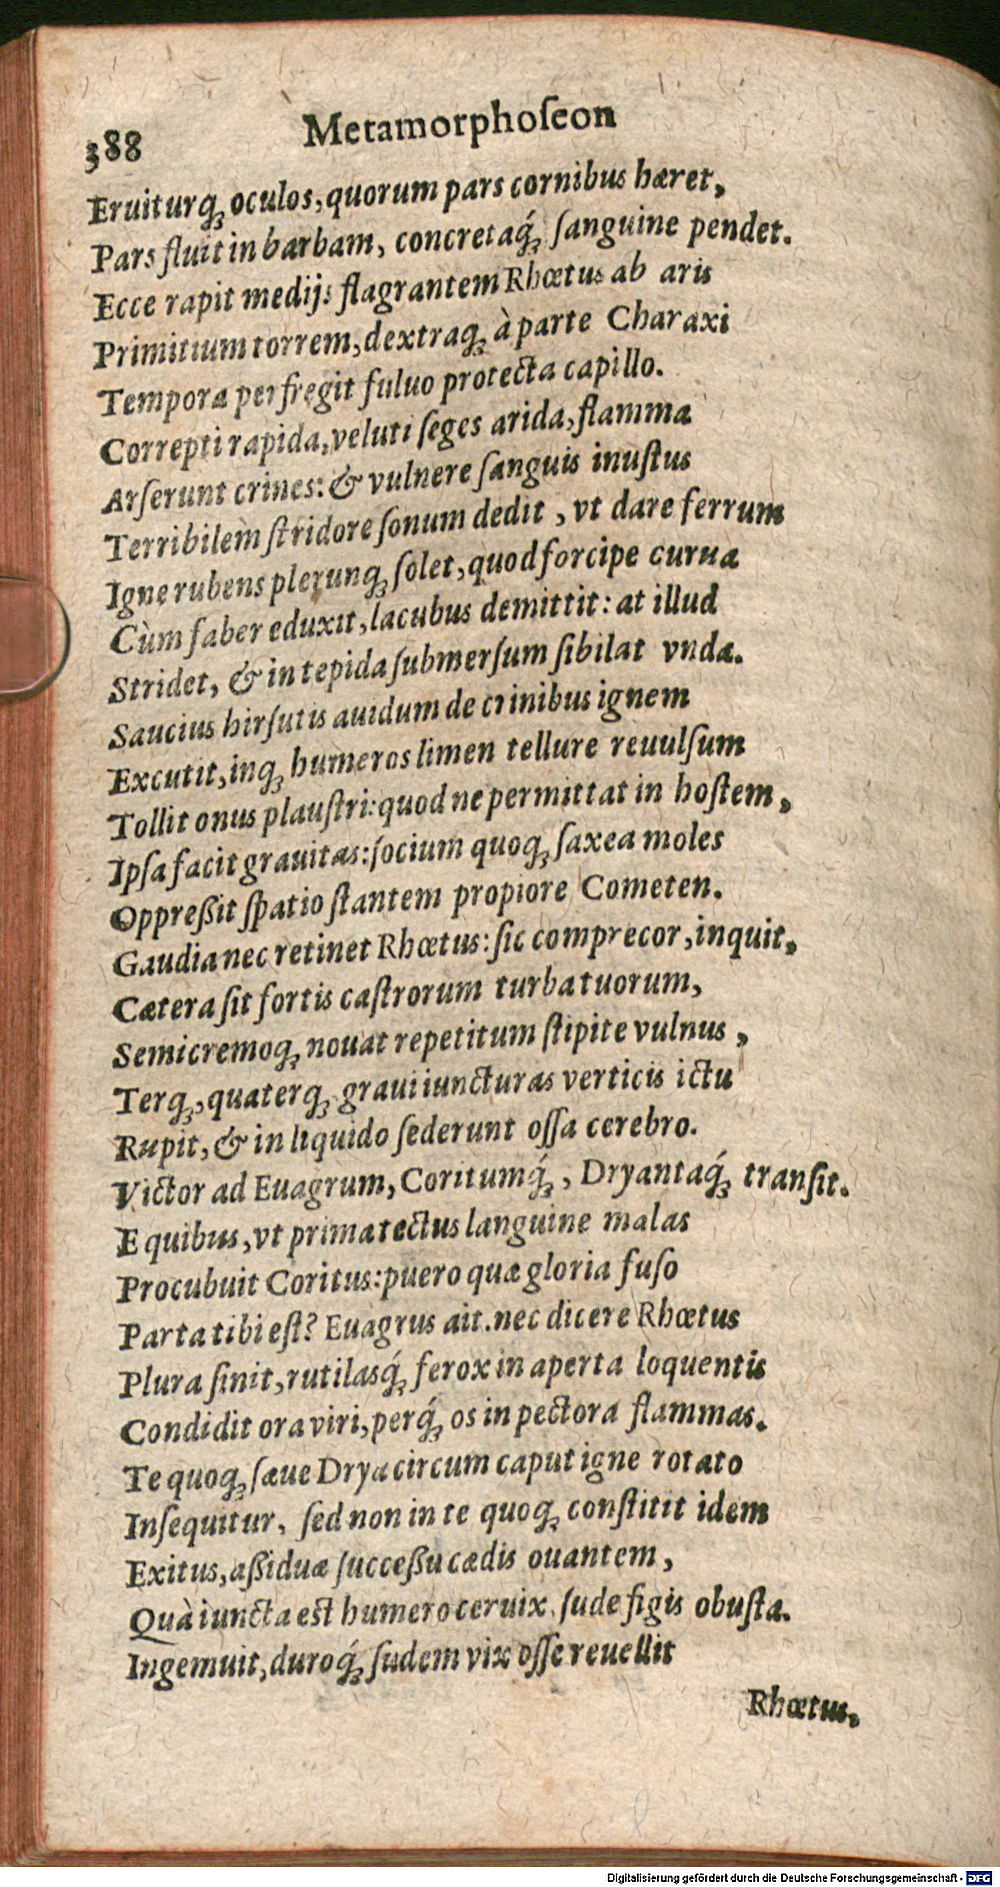 388 Metamorphoſeon
Eruiturq́ꝫ oculos, quorum pars cornibus hæret,
Pars fluit in barbam, concretaq́ꝫ ſanguine pendet.
Ecce rapit medijs flagrantem Rhœtus ab aris
Primitium torrem, dextraqꝫ à parte Charaxi
Tempora perfregit fuluo protecta capillo.
Correpti rapida, veluti ſeges arida, flamma
Arſerunt crines: & vulnere ſanguis inuſtus
Terribilem ſtridore ſonum dedit, vt dare ferrum
Igne rubens plerunqꝫ ſolet, quod forcipe curua
Cùm faber eduxit, lacubus demittit: at illud
Stridet, & in tepida ſubmerſum ſibilat vnda.
Saucius hirſutis auidum de crinibus ignem
Excutit, inqꝫ humeros limen tellure reuulſum
Tollit onus plauſtri: quod ne permittat in hoſtem,
Ipſa facit grauitas: ſocium quoqꝫ ſaxea moles
Oppreßit ſpatio ſtantem propiore Cometen.
Gaudia nec retinet Rhœtus: ſic comprecor, inquit,
Cætera ſit fortis caſtrorum turba tuorum,
Semicremoqꝫ nouat repetitum ſtipite vulnus,
Terqꝫ, quaterqꝫ graui iuncturas verticis ictu
Rupit, & in liquido ſederunt oſſa cerebro.
Victor ad Euagrum, Coritumq́ꝫ, Dryantaq́ꝫ tranſit.
E quibus, vt prima tectus languine malas
Procubuit Coritus: puero quæ gloria fuſo
Parta tibi eſt? Euagrus ait. nec dicere Rhœtus
Plura ſinit, rutilasq́ꝫ ferox in aperta loquentis
Condidit ora viri, perq́ꝫ os in pectora flammas.
Te quoqꝫ ſæue Drya circum caput igne rotato
Inſequitur, ſed non in te quoqꝫ conſtitit idem
Exitus, aßiduæ ſucceßu cædis ouantem,
Quà iuncta est humero ceruix, ſude figis obuſta.
Ingemuit, duroq́ꝫ ſudem vix oſſe reuellit
Rhœtus,
Digitalisierung gefördert durch die Deutsche Forschungsgemeinschaft - DFG